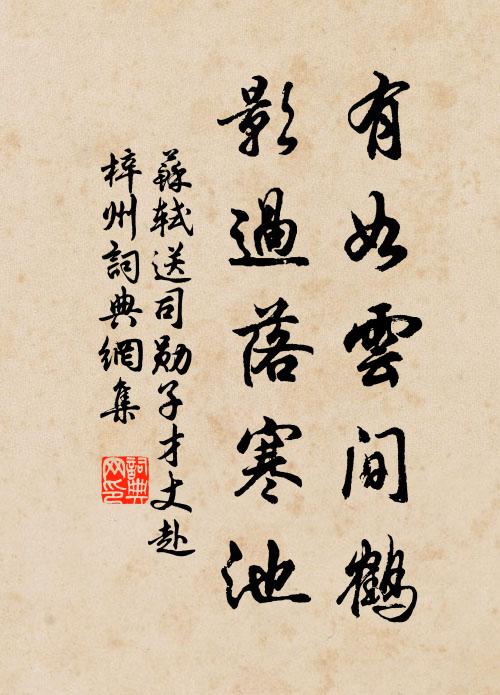 有如雲間鶴
影過落寒池
蘇軾送司勛子才丈赴
梓州詞典網集
詞典网印